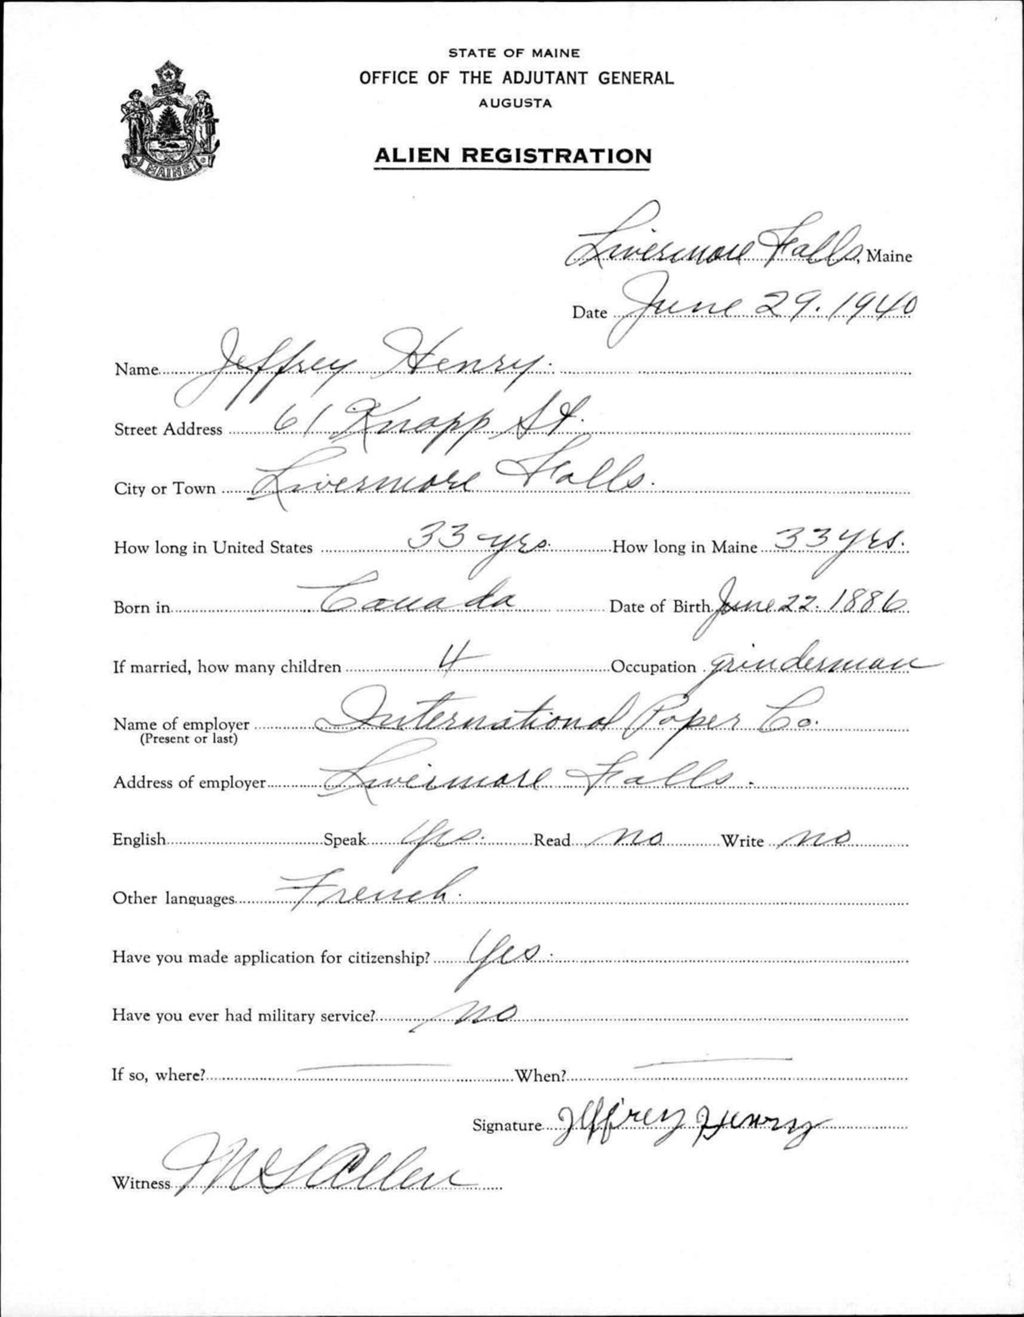 STATE OF MAINE
OFFICE OF THE ADJUTANT GENERAL
AUGUSTA
ALIEN REGISTRATION
MAINE
Livermore Falls, Maine
Date June 29. 1940
Name Jeffrey Henry.
Street Address 61 Knapp St.
City or Town Livermore Falls.
How long in United States 33 yrs. How long in Maine 33 yrs.
Born in Canada Date of Birth June 22. 1886
If married, how many children 4 Occupation grinderman
Name of employer International Paper Co.
(Present or last)
Address of employer Livermore Falls.
English Speak yes. Read no Write no
Other languages French.
Have you made application for citizenship? Yes.
Have you ever had military service? no
If so, where? — When? —
Signature Jeffrey Henry
Witness M S Allen